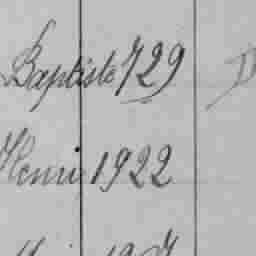 Baptiste 729
Henri 1922